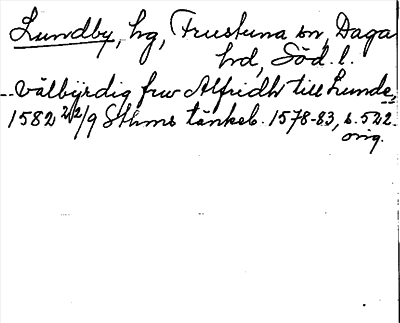 Lundby, hg, Frustuna sn, Daga
hd, Söd. l.
välbyrdig fru Alfridh till Lunde
1582 22/9 Sthms tänkeb. 1578-83, s. 522.
orig.